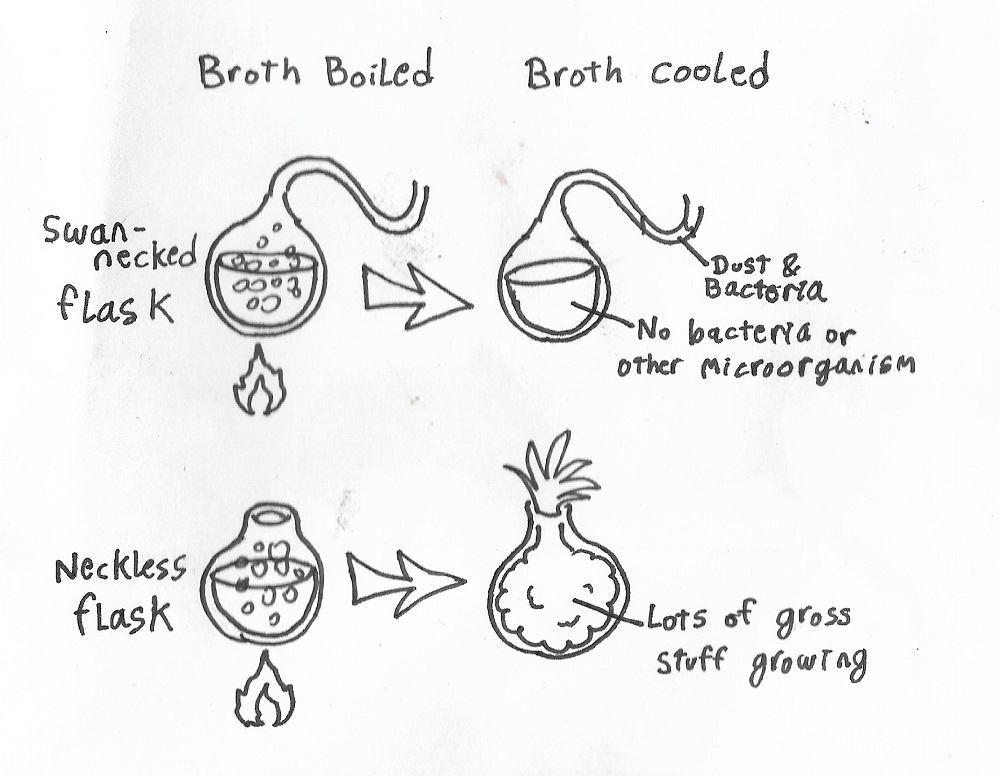 Broth Boiled
Broth cooled
Swan-
necked
flask
Dust &
Bacteria
No bacteria or
other microorganism
Neckless
flask
Lots of gross
stuff growing